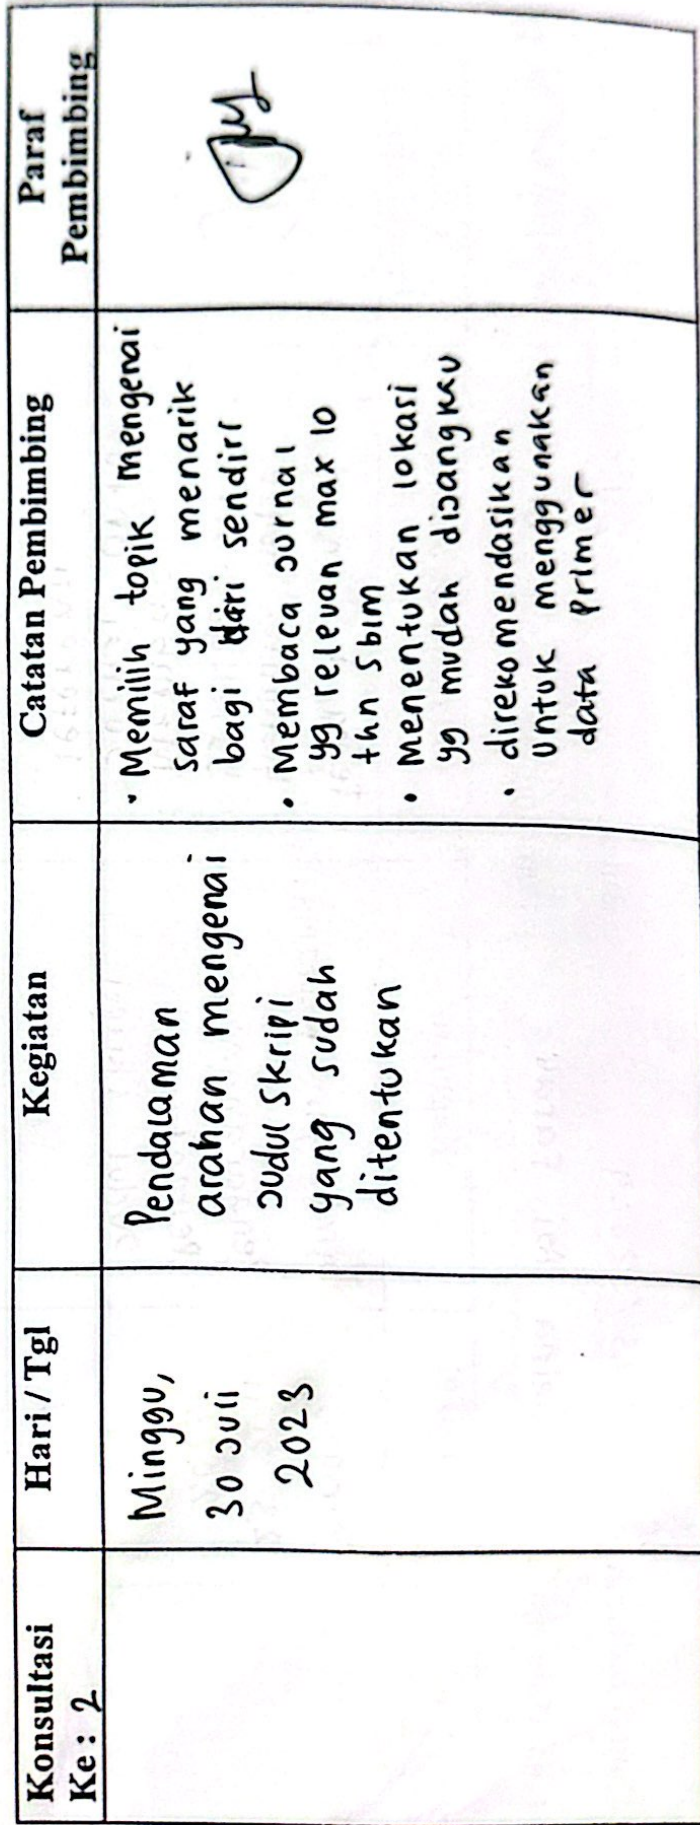 Konsultasi
Ke : 2
Hari / Tgl
Kegiatan
Catatan Pembimbing
Paraf
Pembimbing
Minggu,
30 Juli
2023
Pendalaman
arahan mengenai
Judul Skripi
yang sudah
ditentukan
• Memilih topik mengenai
saraf yang menarik
bagi dari sendiri
• Membaca Jurnal
yg relevan max 10
thn sblm
• Menentukan lokasi
yg mudah diJangkau
• direkomendasikan
untuk menggunakan
data primer